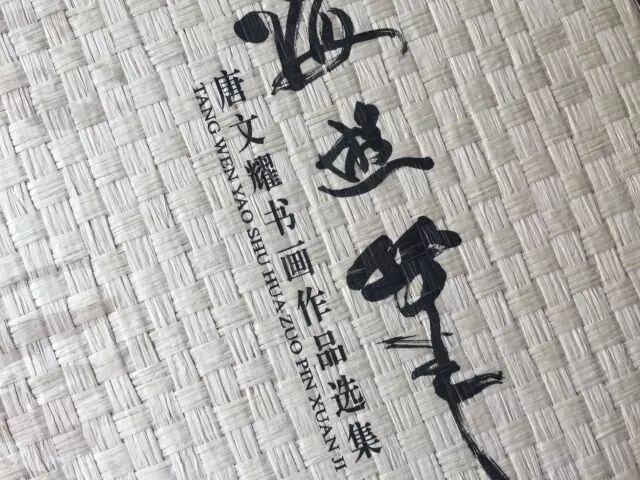 唐文耀书画作品选集
TANG WEN YAO SHU HUA ZUO PIN XUAN JI